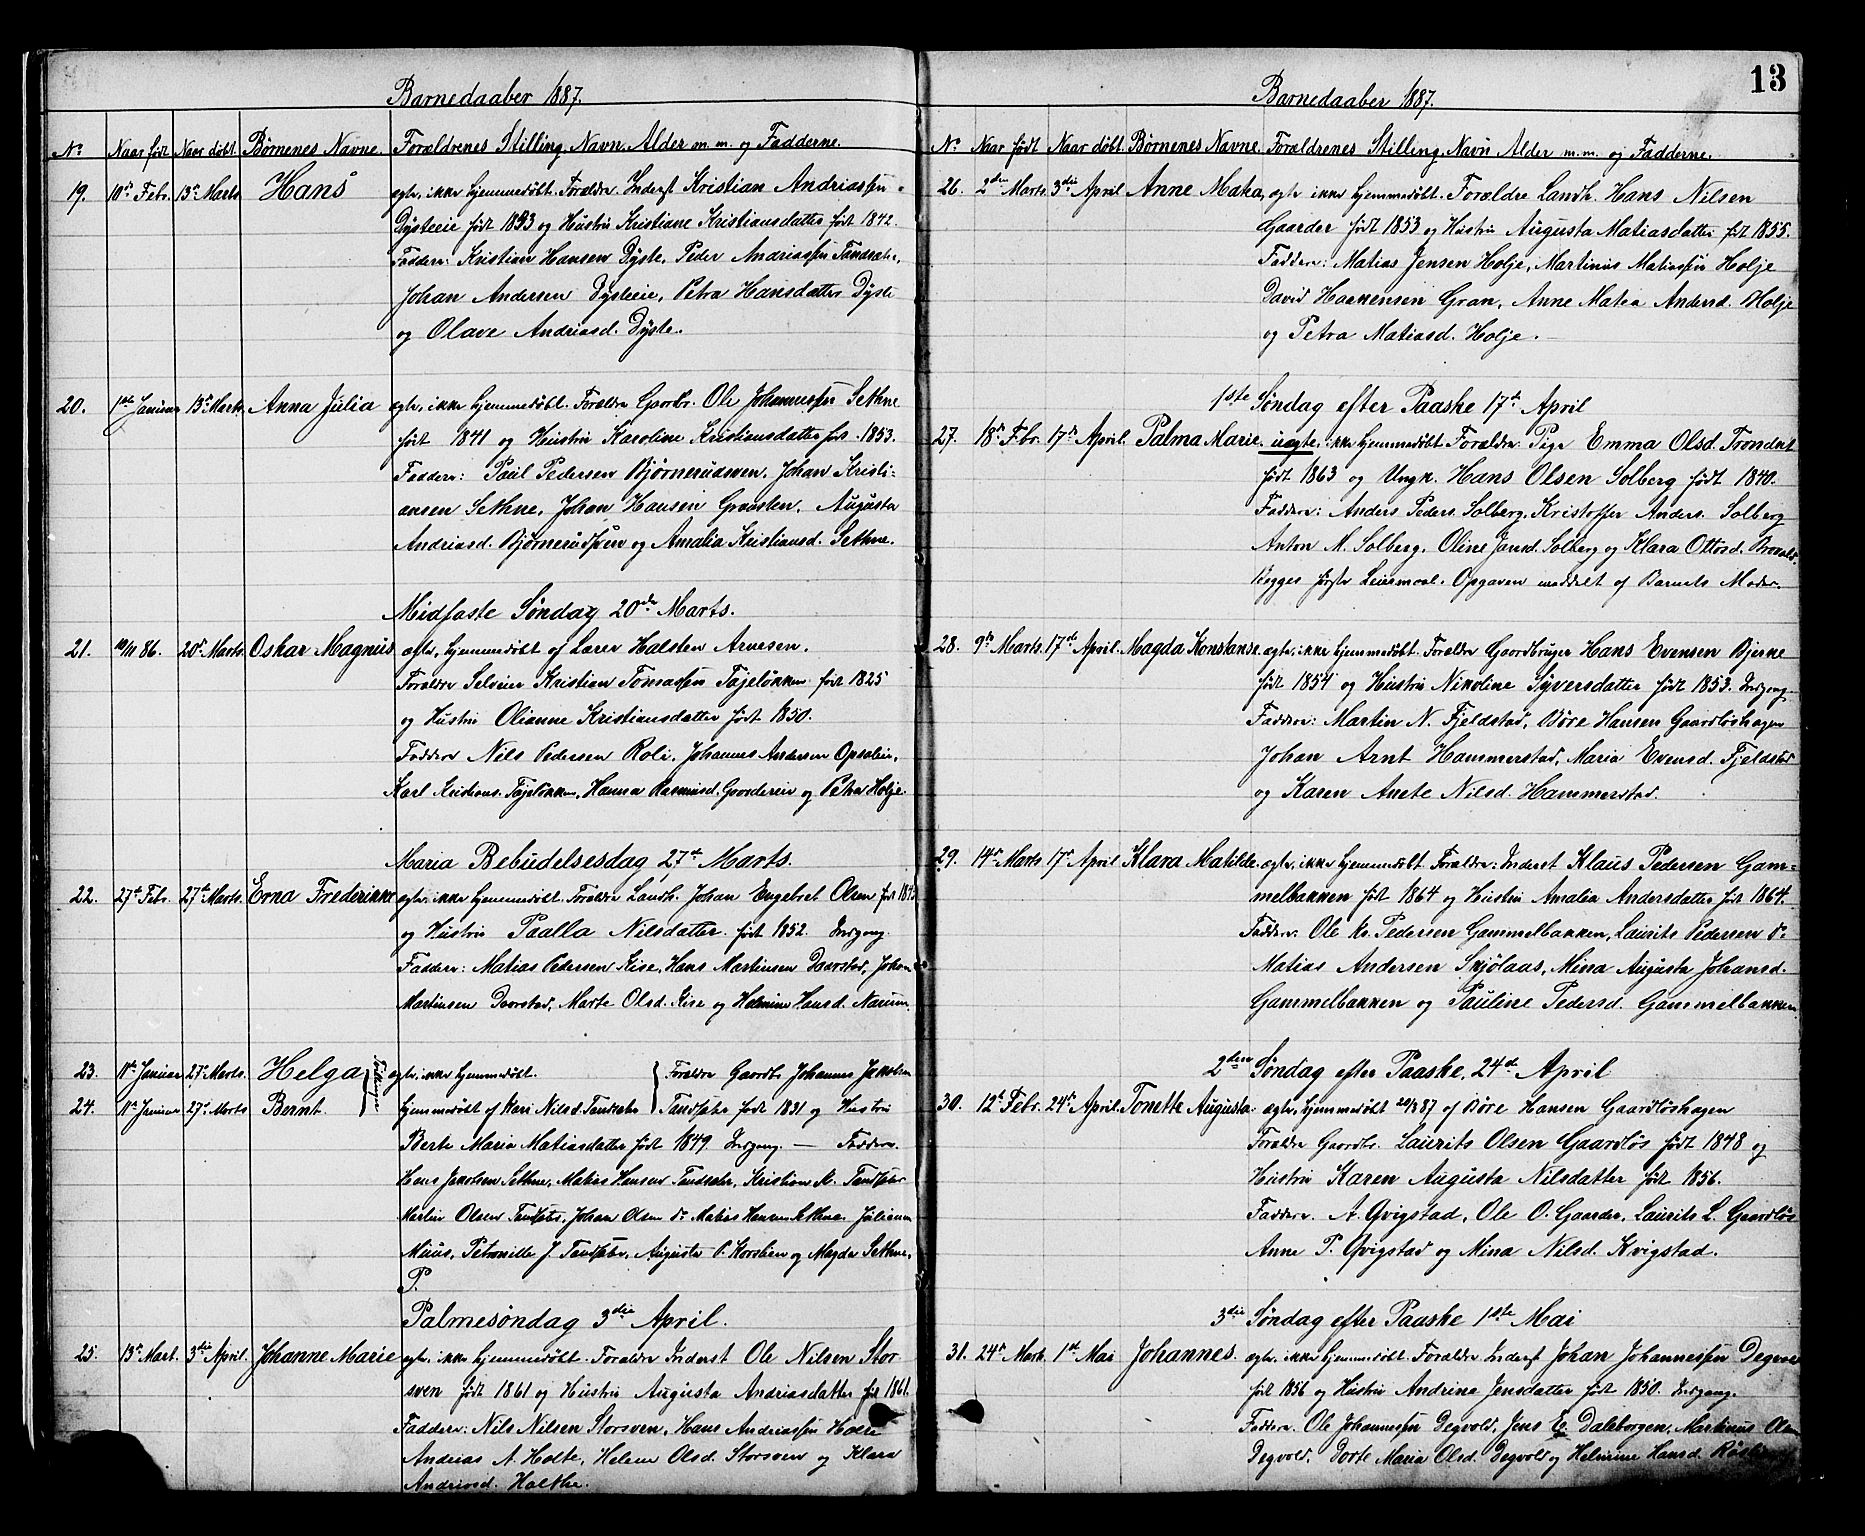 Barnedaaber 1887.
No Naar født Naar døbt. Børnenes Navne. Forældrenes Stilling, Navn, Alder m.m. og Fadderne.
19. 10de Febr. 13de Marts Hans ægte, ikke hjemmedøbt. Forældre Inderst Kristian Andriassen
Dysteeie født 1833 og Hustru Kristiane Kristiansdatter født 1842.
Faddere: Kristian Hansen Dyste, Peder Andriassen
Johan Andersen Dysteeie, Petra Hansdatter Dyste
og Olave Andriasd. Dyste.
20. 1ste Januar 13de Marts. Anna Julia ægte, ikke hjemmedøbt. Forældre Gaardbr. Ole Johannessen Sethne
født 1841 og Hustru Karoline Kristiansdatter født 1853.
Faddere: Paul Pedersen Bjørnerudsven, Johan Kristi-
ansen Sethne, Johan Hansen, Augusta
Andriasd. Bjørnerudsven og Amalia Kristiansd. Sethne.
Midfaste Søndag 20de Marts.
21. 19/11 86. 20de Marts. Oskar Magnus ægte, hjemmedøbt af Lærer Halsten Arvesen.
Forældre Selveier Kristian Tomassen Tajeløkken født 1825
og Hustru Olianne Kristiansdatter født 1850.
Faddere Nils Pedersen Roli, Johannes Andersen Opsaleie,
Karl Kristians. Tajeløkken, Hanna Rasmusd. Gaardereie og Petra Holje.
Maria Bebudelsesdag, 27de Marts.
22. 27de Febr. 27de Marts. Erna Frederikke ægte, ikke hjemmedøbt. Forældre Landh. Johan Engebret Olsen født
og Hustru Paalla Nilsdatter født 1852. Indgang.
Faddere: Matias Pedersen Kise, Hans Martinsen Daarstad, Johan
Martinsen Daarstad, Marte Olsd. Kise og Helmine Hansd. Narum.
23. 11te Januar 27de Marts. Helga } Tvillinger ægte, ikke hjemmedøbt. } Forældre Gaardb. Johannes Jakobsen
24. 11te Januar 27de Marts Bernt. hjemmedøbt af Kari Nilsd. Tandsæte } Tandsæte født 1831 og Hustru
Berte Maria Matiasdatter født 1849. Indgang. — Faddere.
Hans Jakobsen Sethne, Matias Hansen Tandsæte, Kristian M. Tandsæte
Martin Olsen Tandsæte, Johan Olsen do Matias Hansen Sethne Juliane
Muus, Petronille J. Tandsæte, Augusta O. Korslien og Magda Sethne.
P.
Palmesøndag 3die April.
25. 13de Mart. 3die April. Johanne Marie ægte, ikke hjemmedøbt. Forældre Inderst Ole Nilsen Stor-
sven født 1861 og Hustru Augusta Andriasdatter født 1861.
Faddere: Nils Nilsen Storsven, Hans Andriassen Holte
Andrias A. Holte, Helene Olsd. Storsven og Klara
Andriasd. Holthe.
13
Barnedaaber 1887.
No Naar født Naar døbt. Børnenes Navne. Forældrenes Stilling, Navn, Alder m.m. og Fadderne.
26. 2den Marts. 3die April Anne Matea, ægte ikke hjemmedøbt. Forældre Landh. Hans Nilsen
Gaarder født 1853 og Hustru Augusta Matiasdatter født 1855.
Faddere: Matias Jensen Holje, Martinus Matiassen Holje
David Haakensen Gran, Anne Matea Andersd. Holje
og Petra Matiasd. Holje.
1ste Søndag efter Paaske 17de April
27. 18de Fbr. 17de April. Palma Marie. uægte, ikke hjemmedøbt. Forældre: Pige Emma Olsd.
født 1863 og Ungk. Hans Olsen Solberg født 1840.
Faddere: Anders Peders. Solberg, Kristoffer Anders. Solberg
Anton M. Solberg, Oline Jansd. Solberg og Klara Ottosd.
Begges første Leiermaal. Opgaven meddelt af Barnets Moder.
28. 9de Marts. 17de April. Magda Konstanse. ægte, ikke hjemmedøbt. Forældre Gaardbruger Hans Evensen Bjerke
født 1854 og Hustru Nikoline Syversdatter født 1853. Indgang.
Faddere: Martin N. Fjeldstad, Børe Hansen Gaardløshagen
Johan Arnt Hammerstad, Maria Evensd. Fjeldstad
og Karen Anete Nilsd. Hammerstad.
29. 14de Marts. 17de April Klara Matilde. ægte, ikke hjemmedøbt. Forældre: Inderst Klaus Pedersen Gam-
melbakken født 1864 og Hustru Amalia Andersdatter født 1864.
Faddere: Ole Kr. Pedersen Gammelbakken, Laurits Pedersen do
Matias Andersen Skjølaas, Mina Augusta Johansd.
Gammelbakken og Pauline Pedersd. Gammelbakken.
2den Søndag efter Paaske, 24de April
30. 12te Febr. 24de April. Tonette Augusta. ægte, hjemmedøbt af Børe Hansen Gaardløshagen
Forældre Gaardbr. Laurits Olsen Gaardløs født 1848 og
Hustru Karen Augusta Nilsdatter født 1856.
Faddere. A. Qvigstad, Ole O. Gaarder, Laurits L. Gaardløs
Anne P. Qvigstad og Mina Nilsd. Kvigstad.
3die Søndag efter Paaske 1ste Mai
31. 24de Mart. 1ste Mai Johannes. ægte, ikke hjemmedøbt. Forældre Inderst Johan Johannessen Degvold
født 1856 og Hustru Andrine Jensdatter født 1850. Indgang.
Faddere. Ole Johannessen Degvold, Jens E. Daleborgen, Martinus Olsen
Degvold, Dorte Maria Olsd. Degvold og Helmine Hansd.